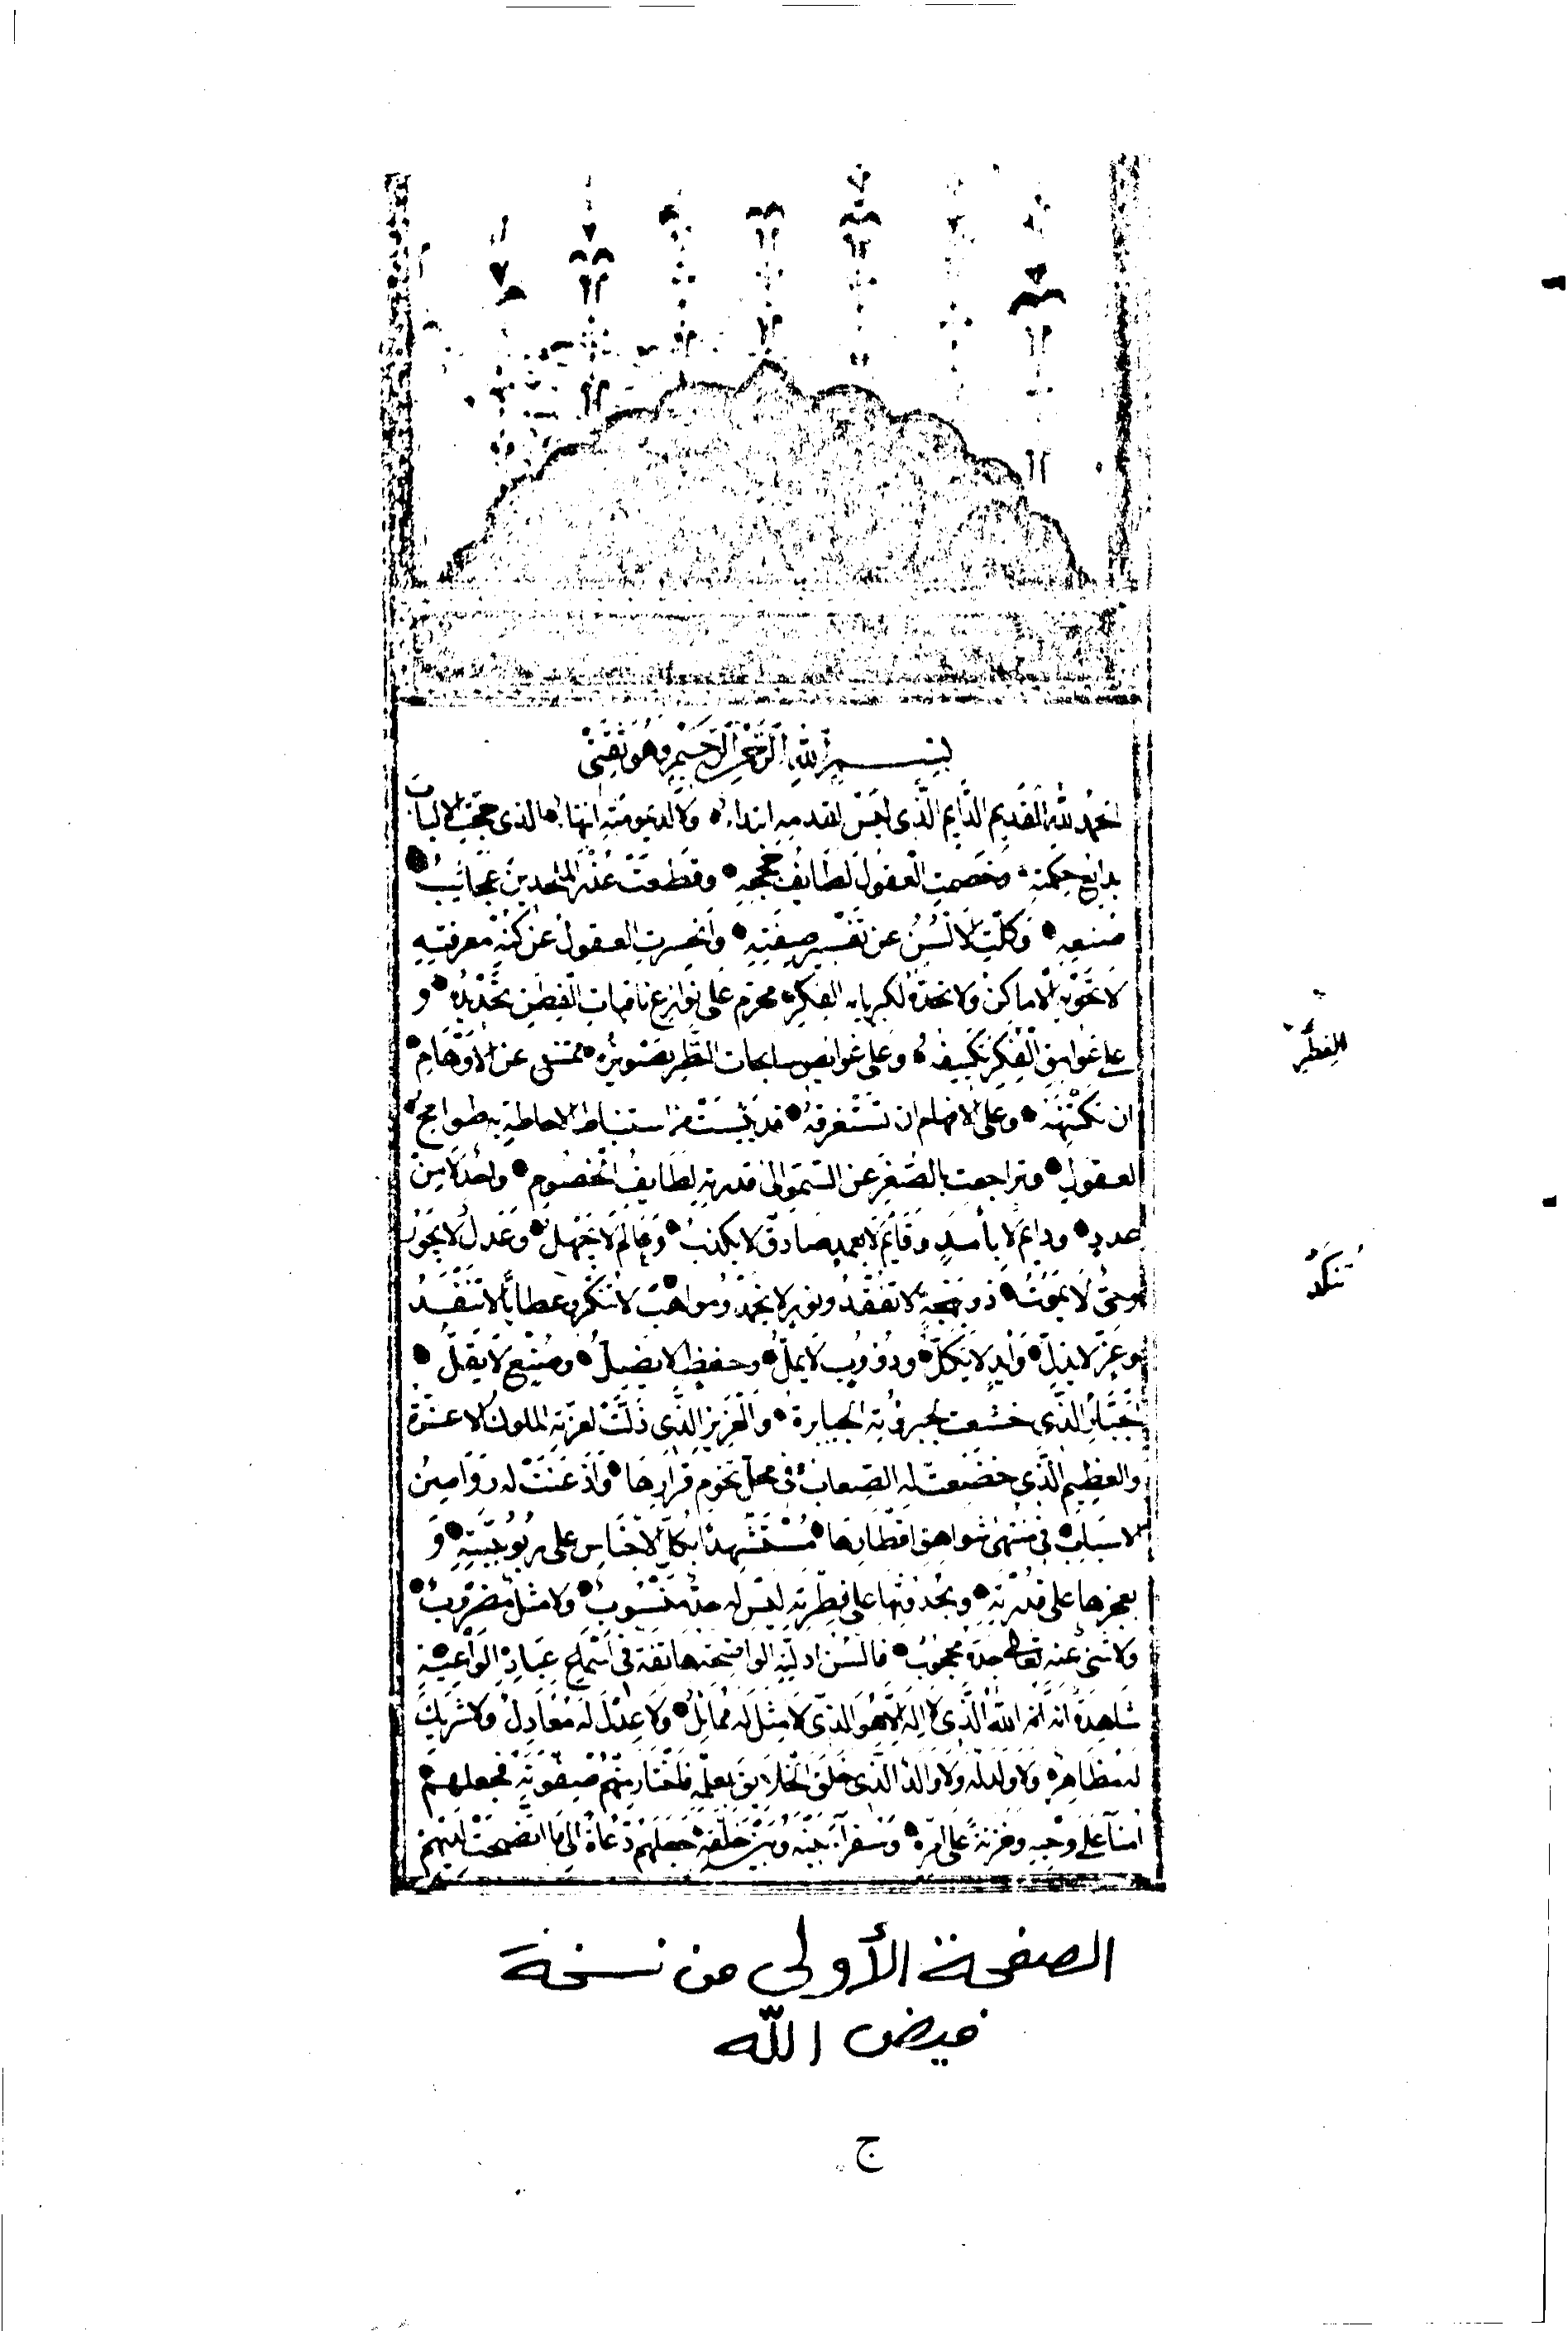 بسم الله الرحمن الرحيم وهو ثقتي
الحمد لله القديم الدايم الذي ليس لقدمه ابتداء ولا لديمومته انتهاء الذي حجت الالباب
بدايع حكمته وخصمت العقول لطايف حججه وقطعت عذر الملحدين عجائب
صنعه وكلت الالسن عن تفسير صفته وانحسرت العقول عن كنه معرفته
لا تحويه الاماكن ولا تحده لكبريايه الفكر محرم على نوازع ناقبات الفطن تحديده و
على غوامق الفكر تكييفه وعلى غوايص سابحات النظر تصويره ممتنع عن الاوهام
ان تكتنهه وعلى الافهام ان تستغرقه قد يئست من استنباط الاحاطة به طوامح
العقول وتراجعت بالصغر عن السمو الى قدرته لطايف الخصوم واحد لا من
عدد ودايم لا بأمد وقايم لا بعمد صادق لا يكذب وعالم لا يجهل وعدل لا يجور
وحي لا يموت ذو بهجة لا تفقد ونور لا يخمد ومواهب لا تنكد وعطايا لا تنفد
وعز لا يذل وأيد لا يكل ودؤوب لا يمل وحفيظ لا يضل وصنيع لا يقل
الجبار الذي خشعت لجبروته الجبابرة والعزيز الذي ذلت لعزته الملوك الاعزة
والعظيم الذي خضعت له الصعاب في محل تخوم قرارها واذعنت له رواصين
الاسباب في منتهى شواهق اقطارها مستشهدا بكل الاجناس على ربوبيته و
بعجزها على قدرته وبحدوثها على فطرته ليس له حد منسوب ولا مثل مضروب
ولا شيء عنه تعالى جده محجوب فالسن ادلته الواضحة هاتفة في اسماع عباده الواعية
شاهدة انه الله الذي لا اله الا هو الذي لا مثل له مماثل ولا عدل له معادل ولا شريك
له مظاهر ولا ولد له ولا والد الذي خلق الخلايق بعلمه فاختار منهم صفوته فجعلهم
امنآ على وحيه وخزنة على امره وسفرآ بينه وبين خلقه جعلهم دعاة الى ما اتضحت
الفطر
تنكد
الصفحة الأولى من نسخة
فيض الله
ج